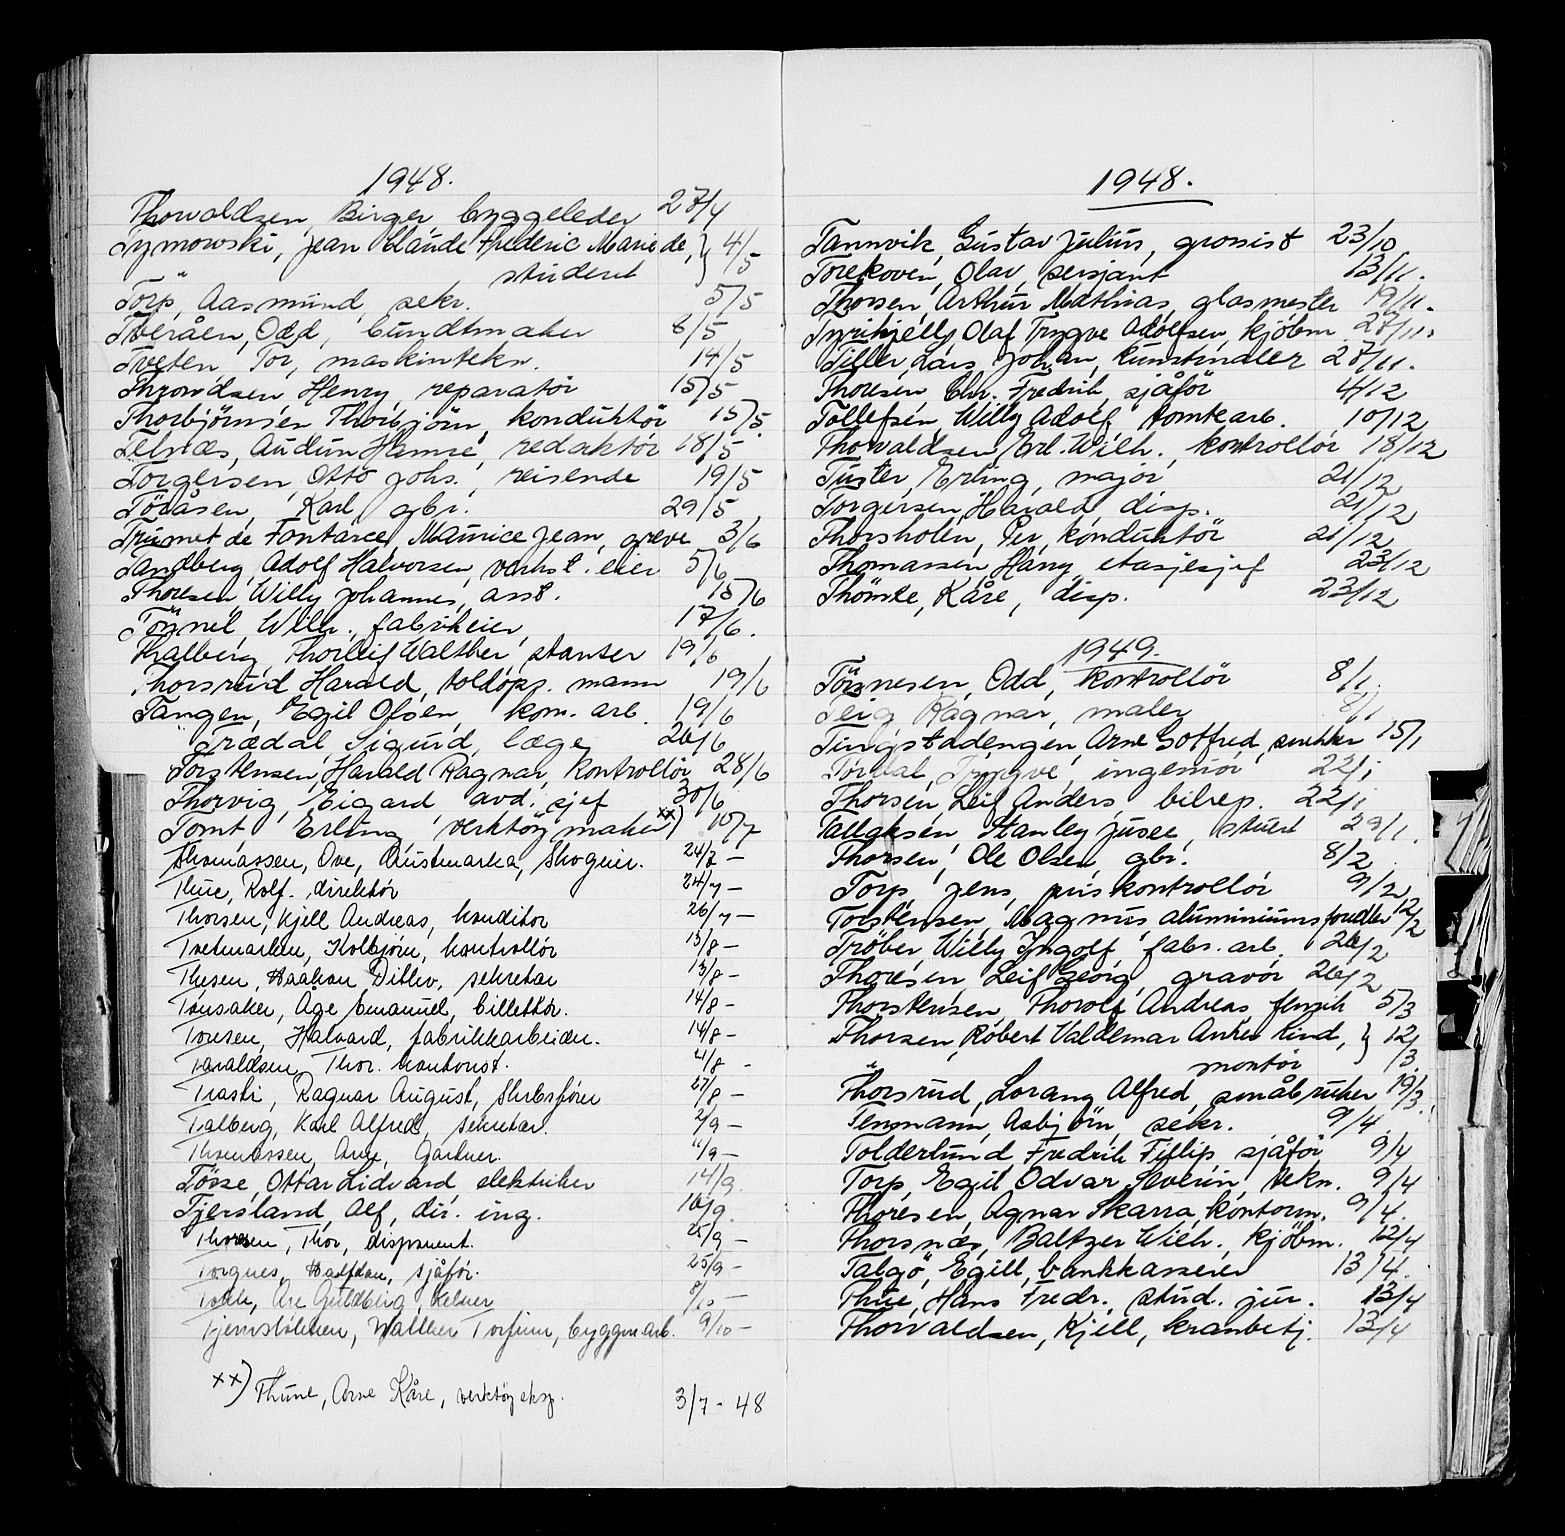 1948.
Thorvaldsen, Birger byggeleder 27/4
Tymowski, Jean Claude Frederic Marie de, } 4/5
" student
Torp, Aasmund, sekr. 5/5
Tveråen, Odd, bundtmaker 8/5
Tveten, Tor, maskintekn. 14/5
Throndsen Henry, reparatør 15/5
Thorbjörnsen Thorbjörn, konduktör 15/5
Telnæs, Audun redaktør 18/5
Torgersen, Otto Johs., reisende 19/5
Töråsen, Karl, gbr. 29/5
Trumet de Fontarce, Maurice Jean, greve 3/6
Tandberg, Adolf Halvorsen, verkst. eier 5/6
Thoresen Willy Johannes, asst. 15/6
Tönnel, Wilh., fabrikeier, 17/6.
Thalberg, Thorleif Walther, stanser 19/6
Thorsrud Harald, toldops. mann 19/6
Tangen, Egil Olsen, kom. arb. 19/6
Trædal, Sigurd, læge 26/6
Torstensen, Harald Ragnar, kontrollör 28/6
Thorvig, Eigard avd. sjef 30/6
Tomt, Erling, verktöymaker xx) 10/7
Thomassen, Ove, Austmarka, skogeier. 24/7 -
Thue, Rolf. direktør 24/7 -
Thorsen, Kjell Andreas, konditor 26/7 -
Tvetmarken, Kolbjørn, kontrollør 13/8 -
Thesen, Haakon Ditlev, sekretær 13/8 -
Tonsaker, Åge Emanuel, billettør. 14/8 -
Tonsen, Halvard, fabrikkarbeider. 14/8 -
Taraldsen, Thor. kontorist. 4/8 -
Trasti, Ragnar August, skribsfører 27/8 -
Talberg, Karl Alfred, sekretær. 2/9 -
Thomassen, Arne, Gartner. 11/9 -
Tösse, Ottar Lidvard elektriker 14/9
Tjersland, Alf, dir. ing. 16/9.
Thoresen, Thor, disponent. 25/9 -
Torgnes, Halfdan, sjåfør. 25/9 -
Are Guldberg, kelner 8/10 -
Tjernsletten, Walther Torfinn, byggnarb. 9/10 -
xx) Thune, Arne Kåre, verktøyeksp. 3/7 - 48
1948.
Tannvik, Gustav Julius, grossist 23/10
Torekoven, Olav, sersjant 13/11.
Thorsen, Arthur Mathias, glasmester 19/11.
Tyrihjell, Olaf Trygve Adolfsen, kjöbm. 27/11.
Tiller, Lars Johan, kunstmaler 27/11.
Thoresen, Chr. Fredrik, sjåför 4/12
Tollefsen, Willy Adolf tomtearb. 10/12
Thorvaldsen, Erl. Wilh., kontrollör 18/12
Tuster, Erling, major 21/12
Torgersen, Harald disp. 21/12
Thorsholen, Per, konduktör 21/12
Thomassen, Harry, etasjesjef 23/12
Thömte, Kåre, disp. 23/12
1949.
Tönnesen, Odd, kontrollör 8/1.
Teig Ragnar, maler 8/1
Tingstadengen, Arne Gotfred, snekker 15/1
Tørdal, Trygve, ingeniör 22/1
Thorsen, Leif Anders, bilrep. 22/1
Tallaksen, Stanley Jusee, stuert 29/1.
Thorsen, Ole Olsen, gbr. 8/2
Torp, Jens, priskontrollör 9/2
Torstensen, Magnus, aluminiumsforedler 12/2
Tröber, Willy Ingolf, fabr. arb. 26/2
Thoresen, Leif Georg, gravör 26/2
Thorstensen, Thorolf Andreas, 5/3
Thorsen, Robert Valdemar Anker Rind, } 12/3.
" montör
Thorsrud, Lorang Alfred, småbruker 19/3.
Tengmann, Asbjörn, sekr. 9/4.
Tolderlund, Fredrik Fillip, sjåför 9/4
Torp, Egil Odvar Severin, tekn. 9/4
Thoresen, Agnar Skarra, kontorm. 9/4.
Thorsnæs, Baltzer Wilh., kjöbm. 12/4
Talgö, Egill, bankkasserer 13/4.
Thue, Hans Fredr., stud. jur. 13/4
Thorvaldsen, Kjell, kranbetj. 13/4